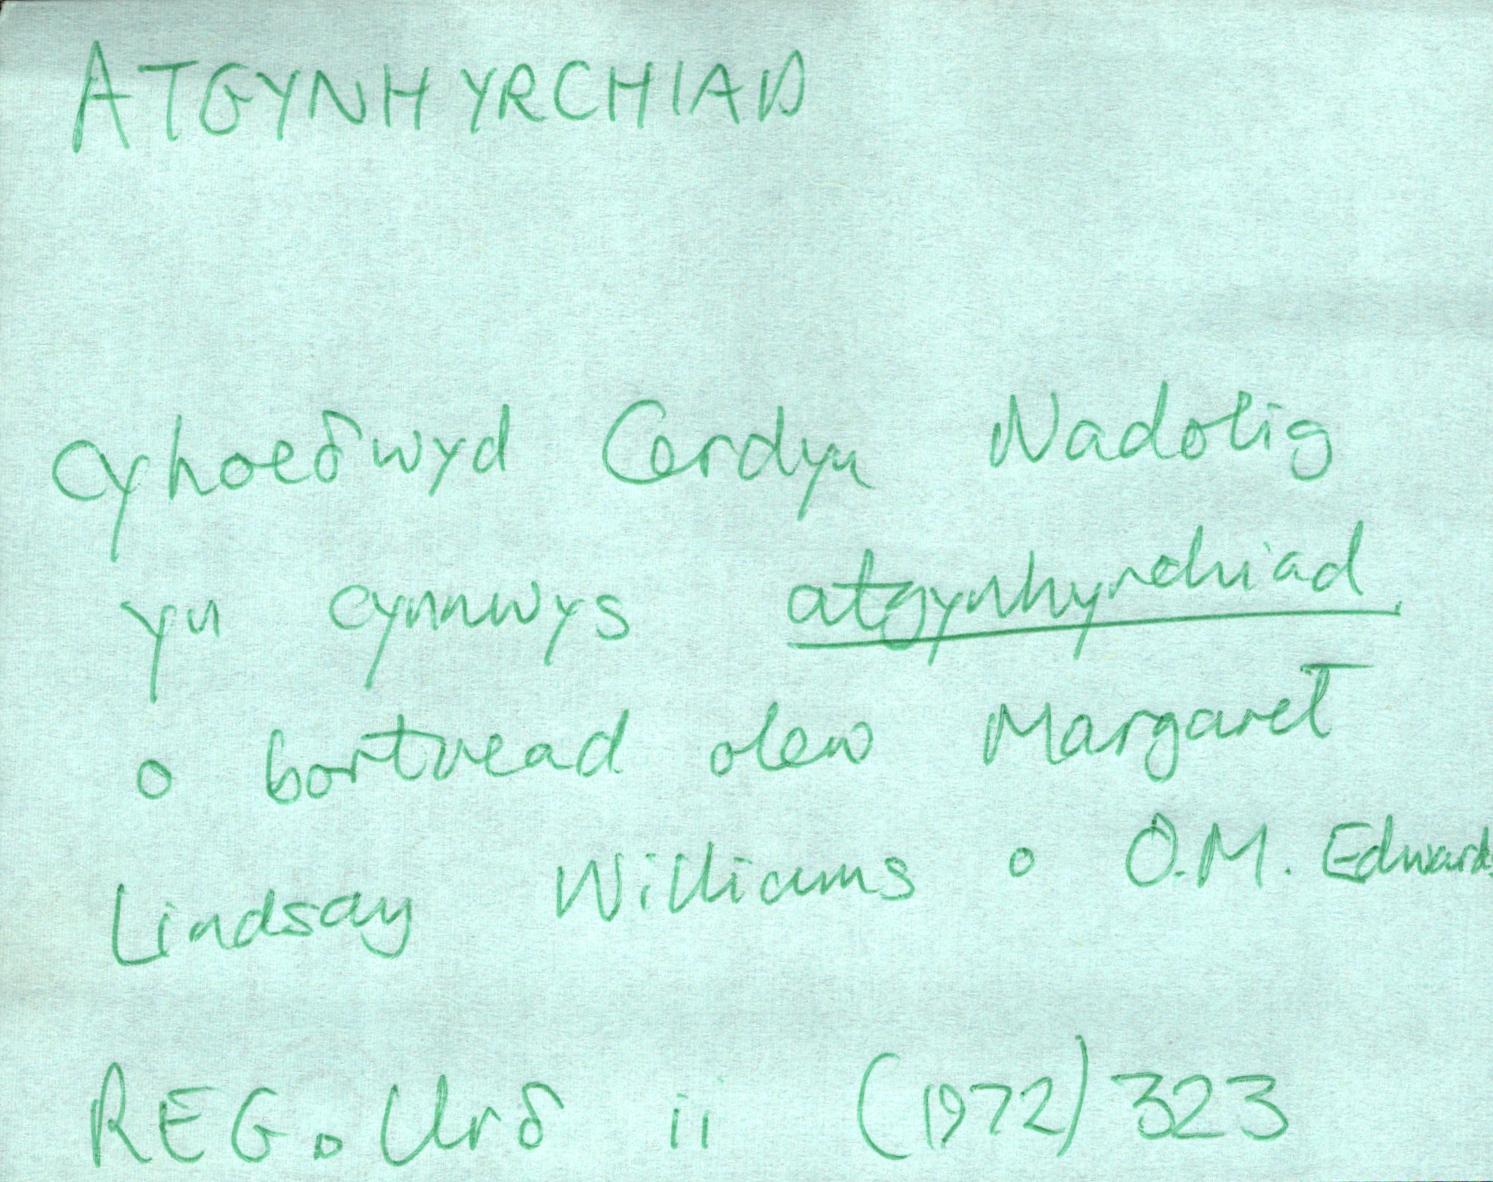 ATGYNHYRCHIAD
Cyhoeδwyd Cerdyn Nadolig
yn cynnwys atgynhyrchiad
o bortread olew Margaret
Lindsay Williams o O.M. Edwards
REG. Urδ ii (1972) 323